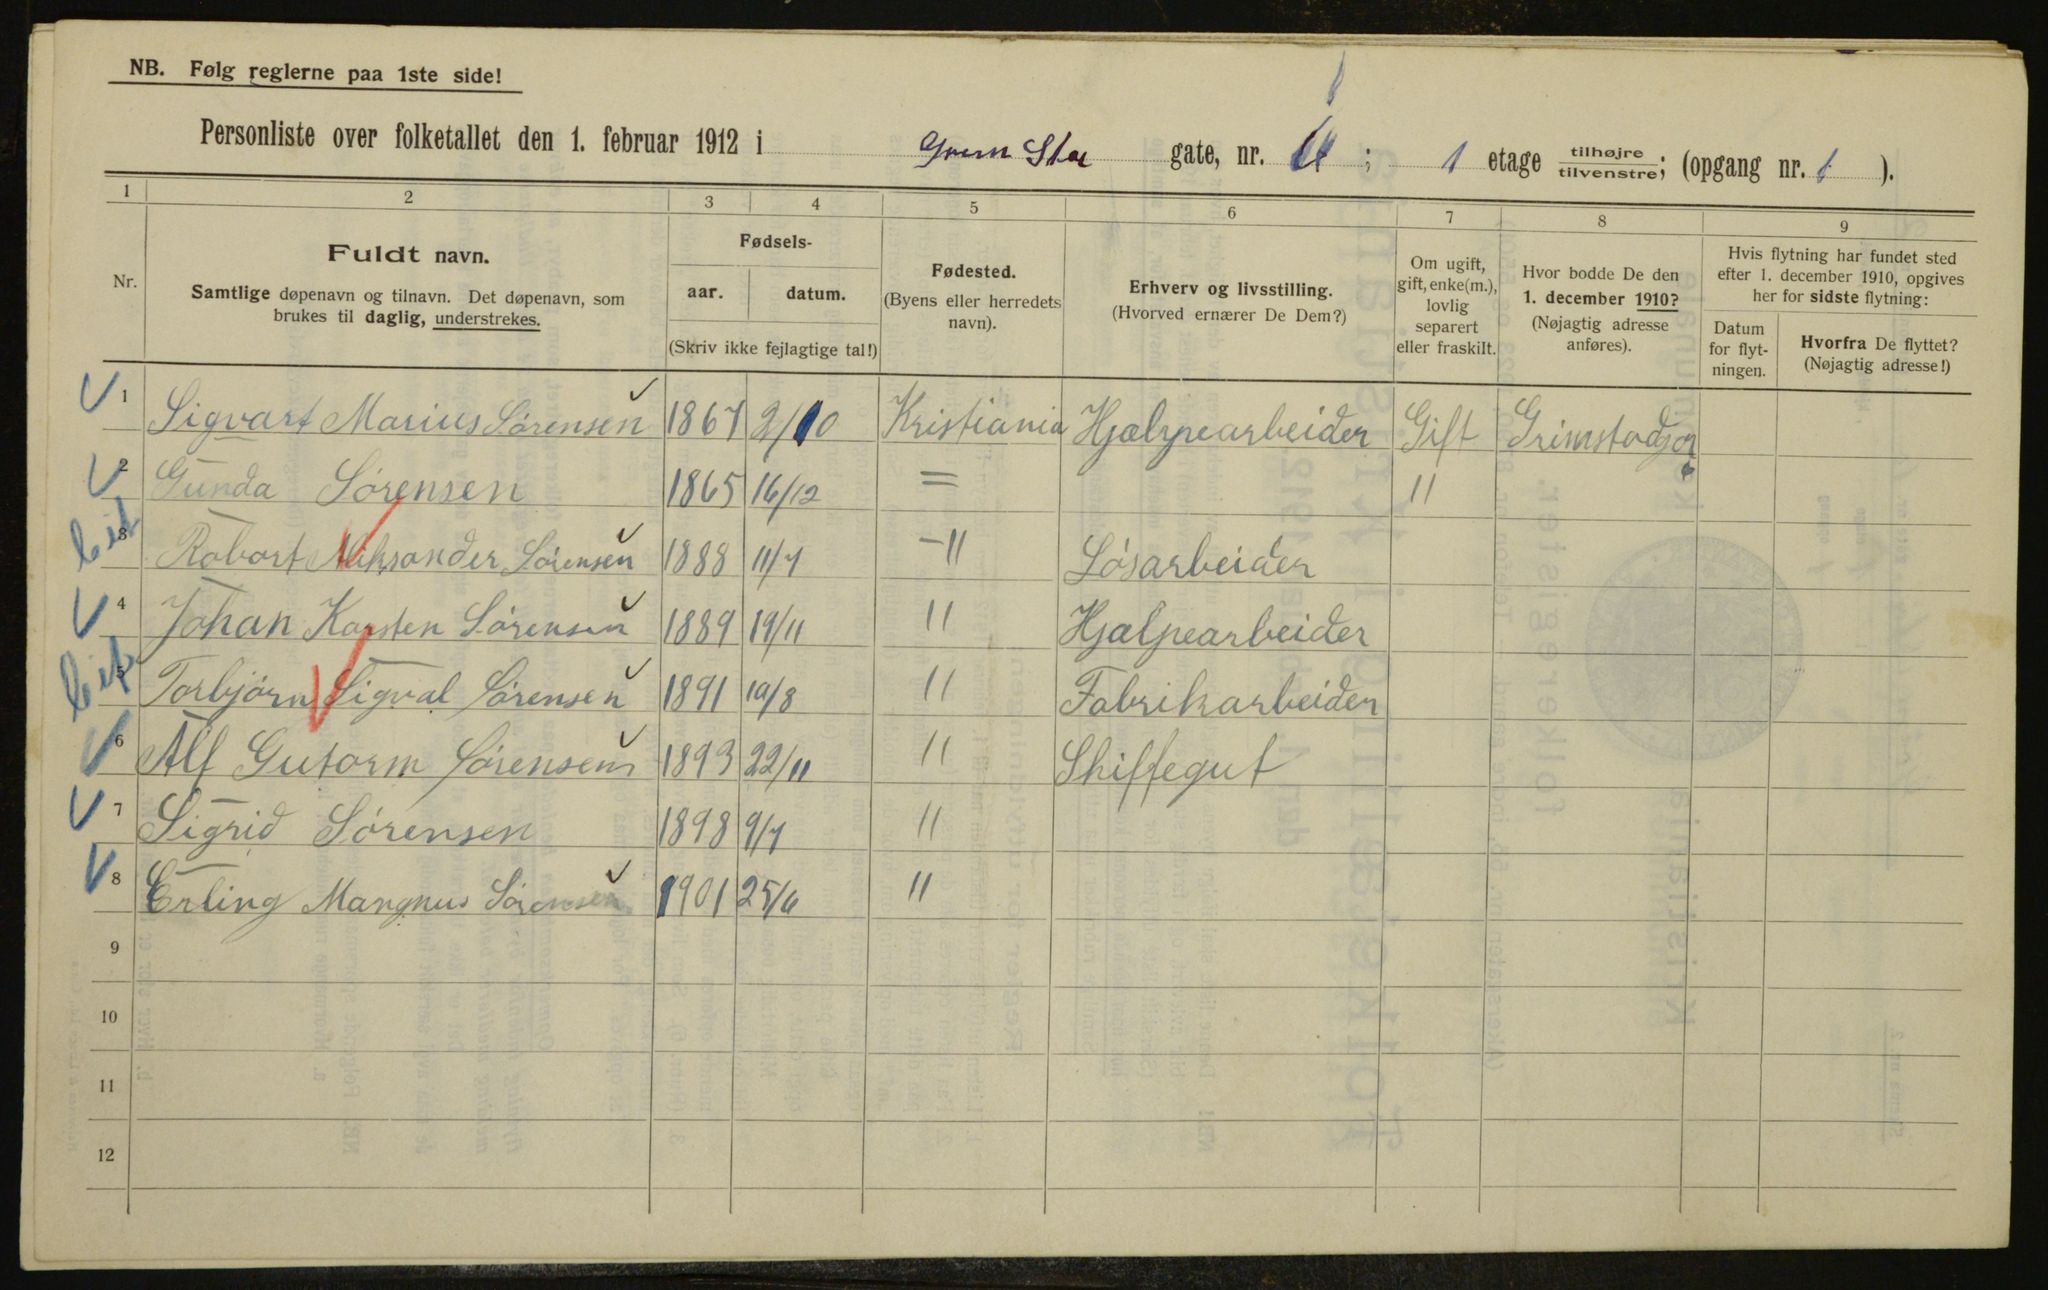 NB. Følg reglerne paa 1ste side!
Personliste over folketallet den 1. februar 1912 i gate, nr. ; 1 etage tilhøjre tilvenstre; (opgang nr. 1 ).
1 2 3 4 5 6 7 8 9
Nr.
Fuldt navn.
Samtlige døpenavn og tilnavn. Det døpenavn, som
brukes til daglig, understrekes.
Fødsels-
aar. datum.
(Skriv ikke fejlagtige tal!)
Fødested.
(Byens eller herredets
navn).
Erhverv og livsstilling.
(Hvorved ernærer De Dem?)
Om ugift,
gift, enke(m.),
lovlig
separert
eller fraskilt.
Hvor bodde De den
1. december 1910?
(Nøjagtig adresse
anføres).
Hvis flytning har fundet sted
efter 1. december 1910, opgives
her for sidste flytning:
Datum
for flyt-
ningen.
Hvorfra De flyttet?
(Nøjagtig adresse!)
1 Sigvart Marius Sørensen 1867 2/10 Kristiania Hjælpearbeider Gift
2 Gunda Sørensen 1865 16/12 = "
3 Robart Aleksander Sørensen 1888 11/7 -" Løsarbeider
4 Johan Karsten Sørensen 1889 19/11 " Hjælpearbeider
5 Torbjørn Sigval Sørensen 1891 19/8 " Fabrikarbeider
6 Alf Gutorm Sørensen 1893 22/11 " Skiffegut
7 Sigrid Sørensen 1898 9/7 "
8 Erling Mangnus Sørensen 1901 25/6 "
9
10
11
12